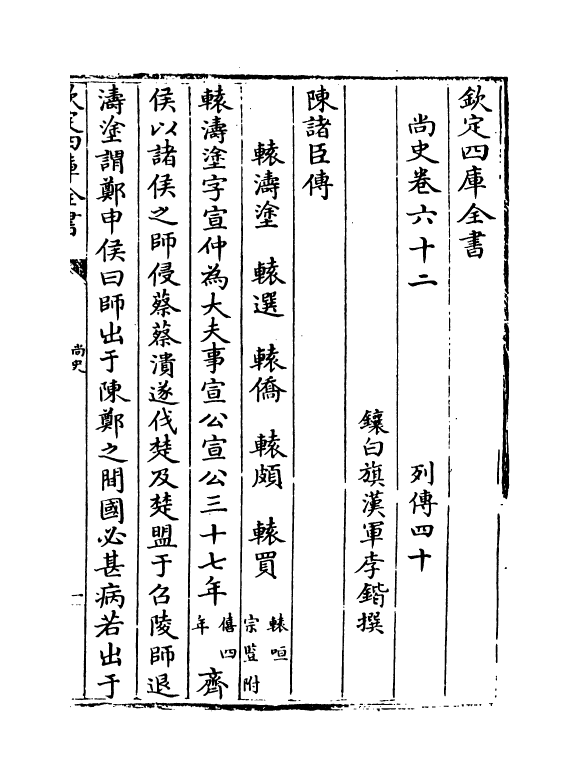 欽定四庫全書
尚史卷六十二　列傳四十
鑲白旗漢軍李鍇撰
陳諸臣傳
轅濤塗　轅選　轅僑　轅頗　轅買　轅咺宗豎附
轅濤塗字宣仲為大夫事宣公宣公三十七年僖四年齊
侯以諸侯之師侵蔡蔡潰遂伐楚及楚盟于召陵師退
濤塗謂鄭申侯曰師出于陳鄭之間國必甚病若出于
欽定四庫全書
尚史
一